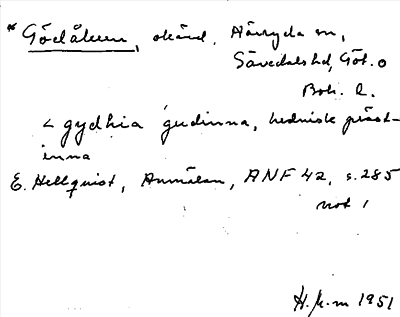 * Gödåkern, okänd, Härryda sn,
Sävedals hd, Göt. o
Boh. l.
< gydhia 'gudinna, hednisk präst-
inna
E. Hellquist, Anmälan, ANF 42, s. 285
not 1
H. M-m 1951